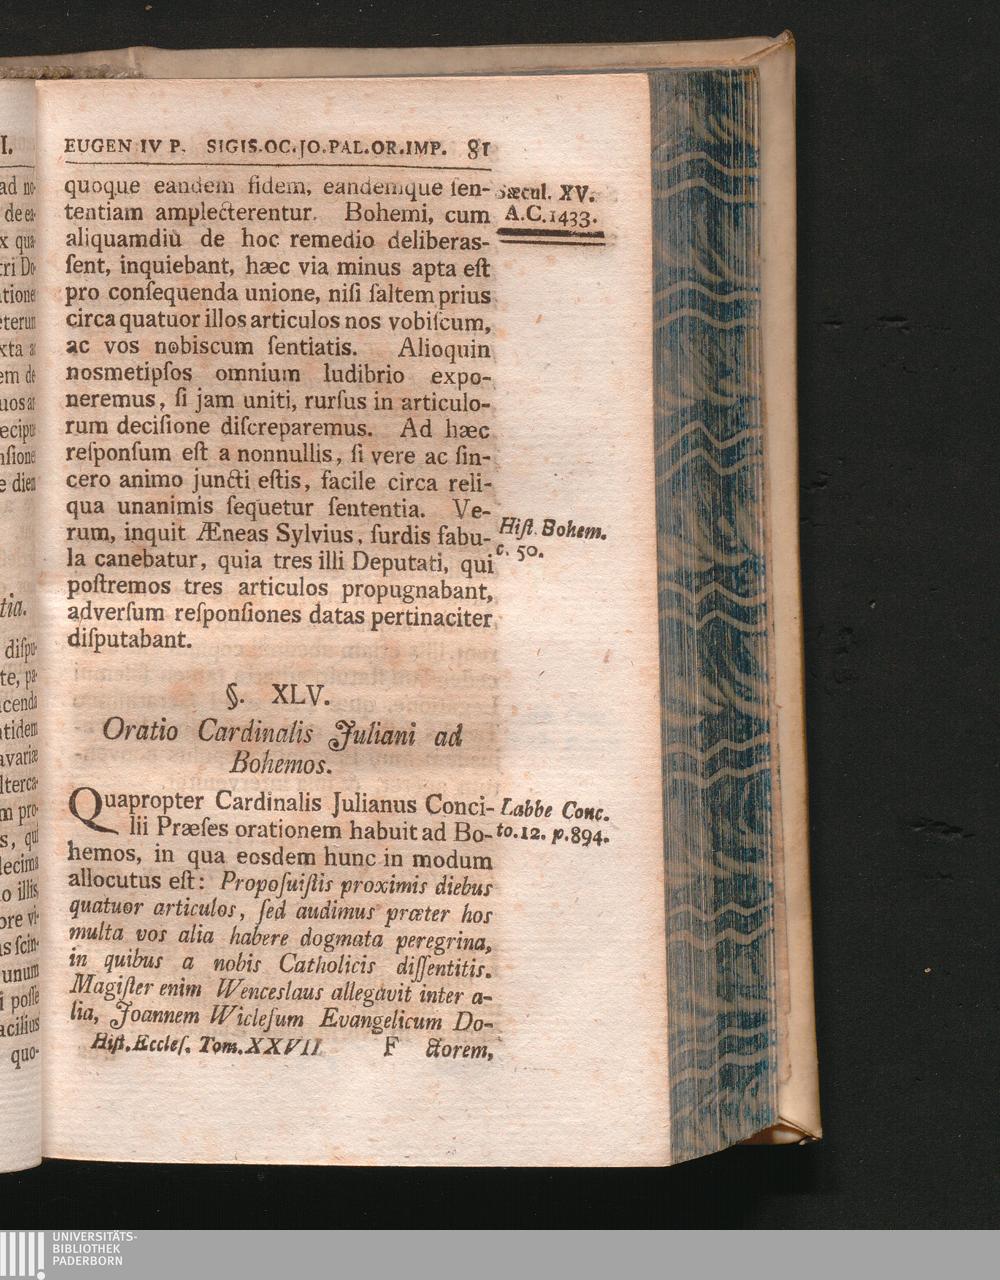 EUGEN IV P. SIGIS.OC.JO.PAL.OR.IMP. 81
quoque eandem fidem, eandemque ſen-
tentiam amplecterentur. Bohemi, cum
aliquamdiu de hoc remedio deliberas-
ſent, inquiebant, hæc via minus apta eſt
pro conſequenda unione, niſi ſaltem prius
circa quatuor illos articulos nos vobiſcum,
ac vos nobiscum ſentiatis. Alioquin
nosmetipſos omnium ludibrio expo-
neremus, ſi jam uniti, rurſus in articulo-
rum deciſione diſcreparemus. Ad hæc
reſponſum eſt a nonnullis, ſi vere ac ſin-
cero animo juncti eſtis, facile circa reli-
qua unanimis ſequetur ſententia. Ve-
rum, inquit Æneas Sylvius, ſurdis fabu-
la canebatur, quia tres illi Deputati, qui
poſtremos tres articulos propugnabant,
adverſum reſponſiones datas pertinaciter
diſputabant.
Sæcul. XV.
A.C.1433.
Hiſt. Bohem.
c. 50.
§. XLV.
Oratio Cardinalis Juliani ad
Bohemos.
Quapropter Cardinalis Julianus Conci-
lii Præſes orationem habuit ad Bo-
hemos, in qua eosdem hunc in modum
allocutus eſt: Propoſuiſtis proximis diebus
quatuor articulos, ſed audimus præter hos
multa vos alia habere dogmata peregrina,
in quibus a nobis Catholicis diſſentitis.
Magiſter enim Wenceslaus allegavit inter a-
lia, Joannem Wiclefum Evangelicum Do-
Labbe Conc.
to.12. p.894.
Hiſt.Eccleſ. Tom.XXVII F ctorem,
I.
ad no-
de ea-
tri Do-
tione
eterum
tia.
diſpu-
te, pa-
icenda
tidem
avariæ
lterca-
m pro-
s, qui
lecima
o illis,
ore vi-
as ſcin-
unum
i poſſe
acilius
quo-
UNIVERSITÄTS-
BIBLIOTHEK
PADERBORN